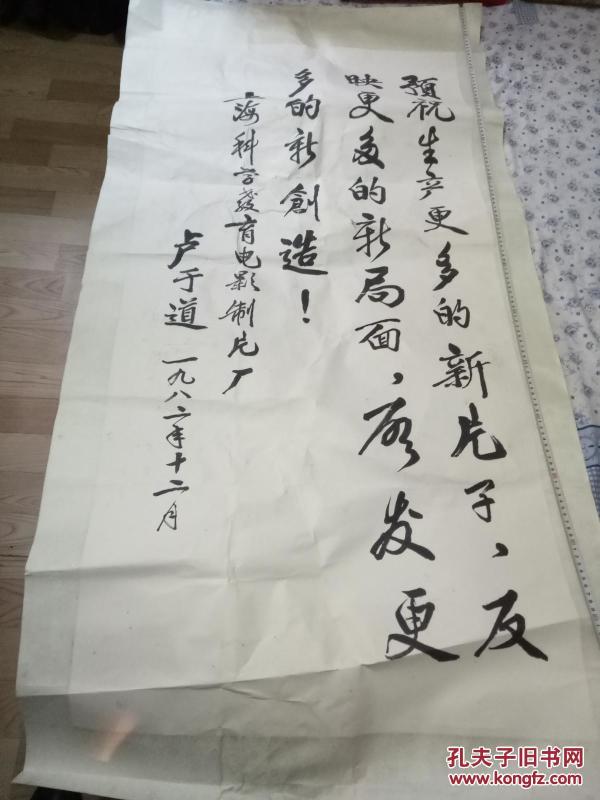 預祝生产更多的新片子，反
映更多的新局面，启发更
多的新創造！
上海科学教育电影制片厂
卢于道 一九八二年十二月
孔夫子旧书网
www.kongfz.com